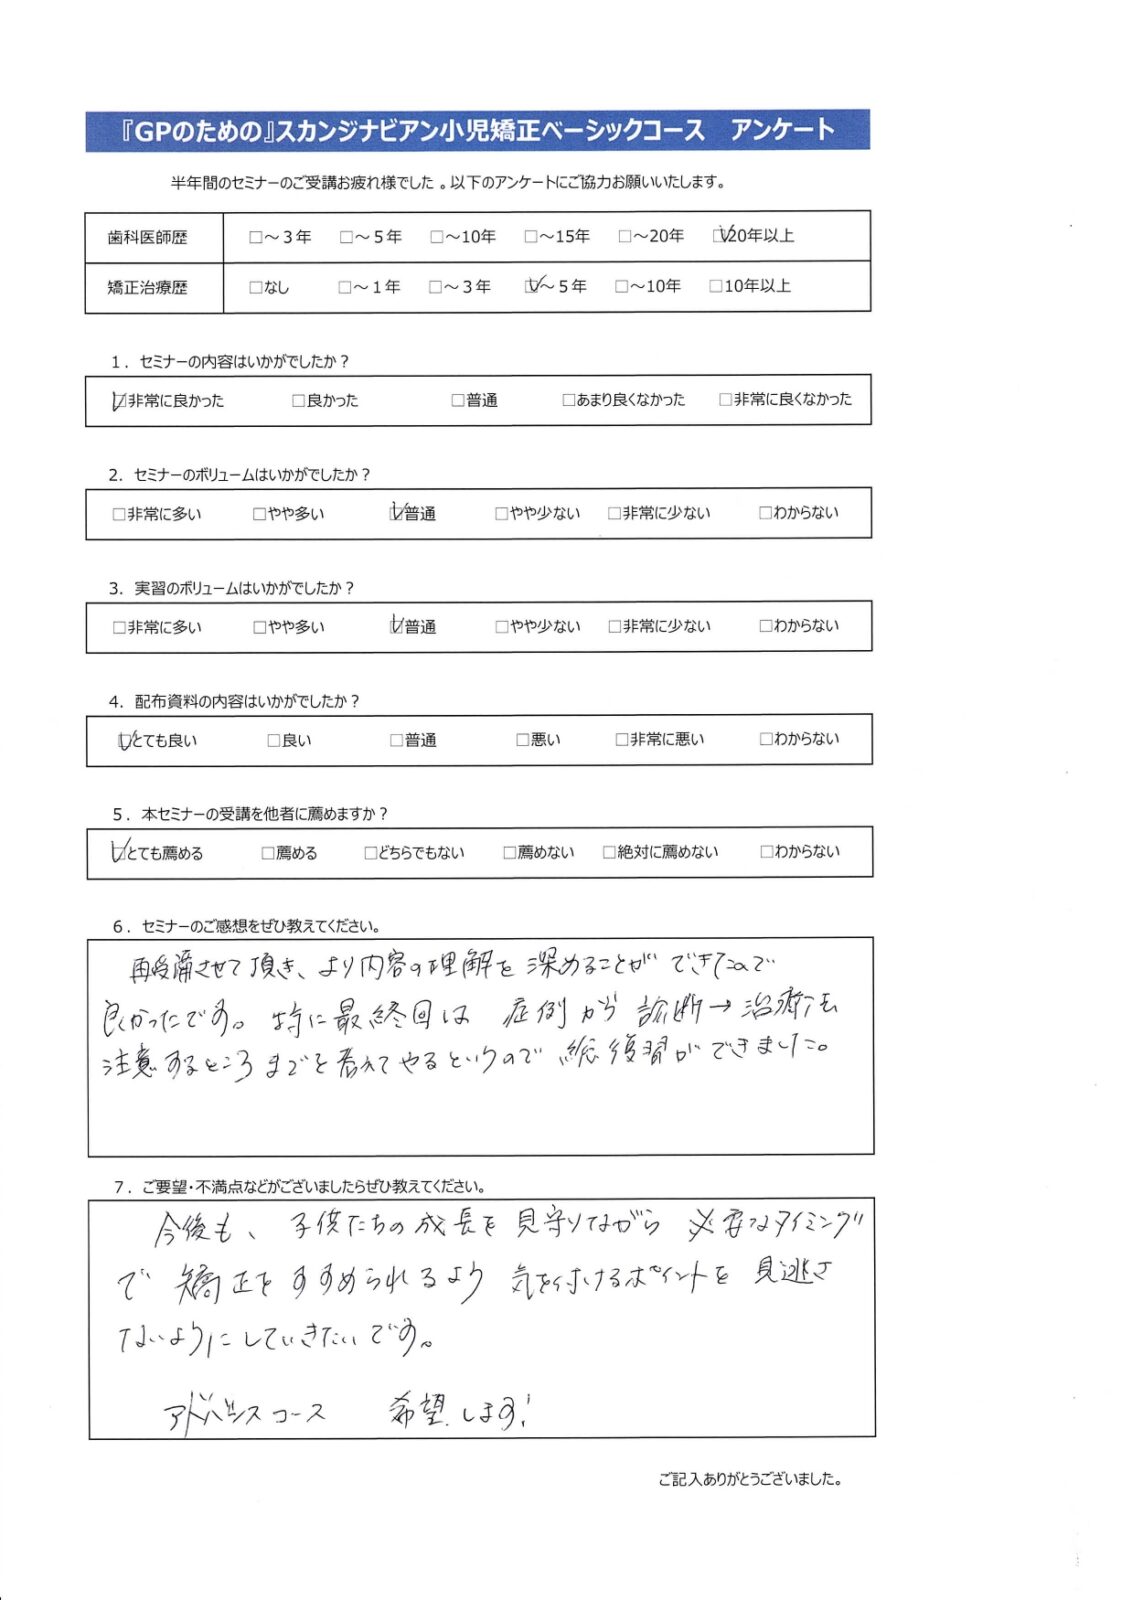 『GPのための』スカンジナビアン小児矯正ベーシックコース　アンケート
半年間のセミナーのご受講お疲れ様でした 。以下のアンケートにご協力お願いいたします。
歯科医師歴 □～３年 □～５年 □～10年 □～15年 □～20年 ☑20年以上
矯正治療歴 □なし □～１年 □～３年 ☑～５年 □～10年 □10年以上
１．セミナーの内容はいかがでしたか？
☑非常に良かった □良かった □普通 □あまり良くなかった □非常に良くなかった
2．セミナーのボリュームはいかがでしたか？
□非常に多い □やや多い ☑普通 □やや少ない □非常に少ない □わからない
3．実習のボリュームはいかがでしたか？
□非常に多い □やや多い ☑普通 □やや少ない □非常に少ない □わからない
4．配布資料の内容はいかがでしたか？
☑とても良い □良い □普通 □悪い □非常に悪い □わからない
５．本セミナーの受講を他者に薦めますか？
☑とても薦める □薦める □どちらでもない □薦めない □絶対に薦めない □わからない
６．セミナーのご感想をぜひ教えてください。
再受講させて頂き、より内容の理解を深めることができたので
良かったです。特に最終回は 症例から診断→治療法
注意するところまでを考えてやるというので 総復習ができました。
７．ご要望・不満点などがございましたらぜひ教えてください。
今後も、子供たちの成長を見守りながら 必要なタイミング
で 矯正をすすめられるよう 気を付けるポイントを 見逃さ
ないようにしていきたいです。
アドバンスコース 希望します!
ご記入ありがとうございました。